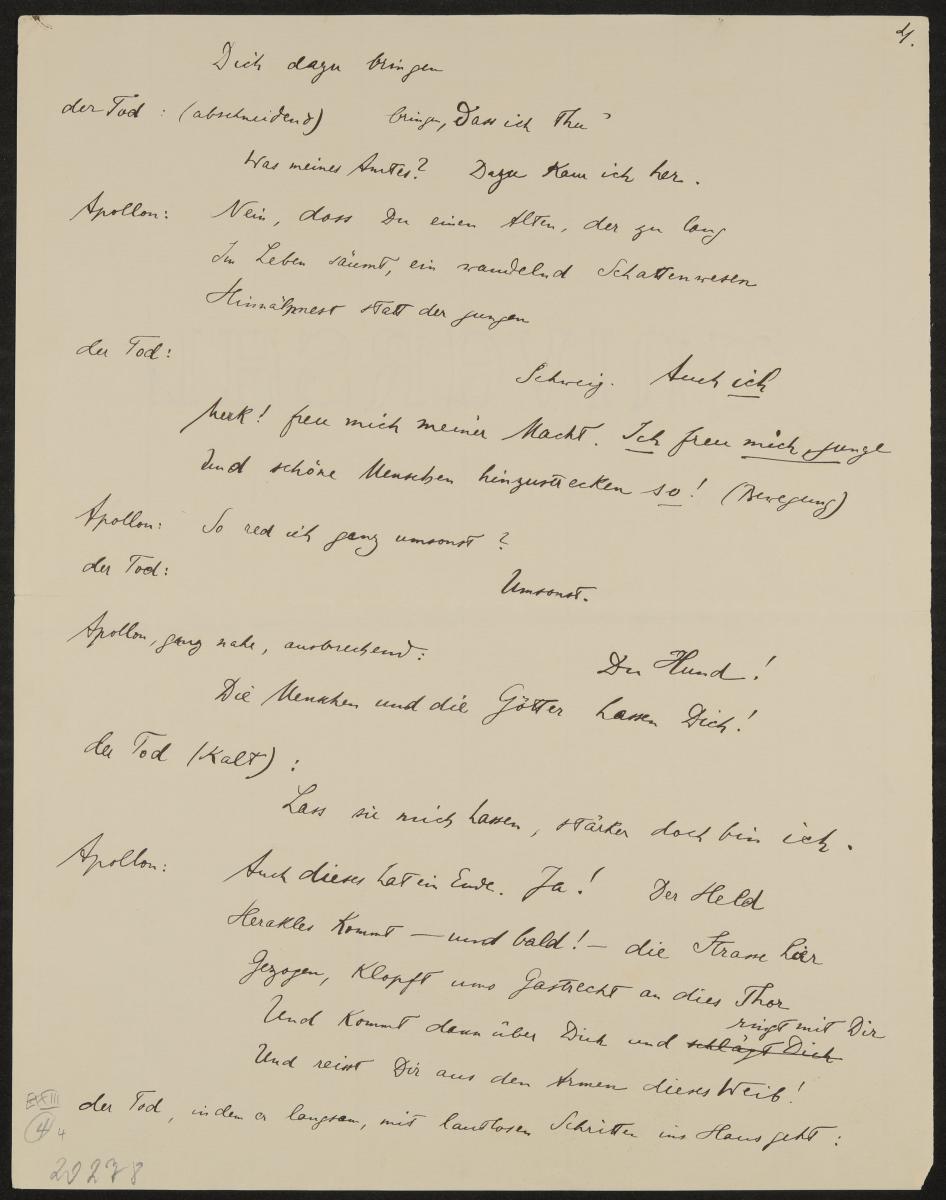 4.
Dich dazu bringen
der Tod : (abschneidend) bringen, dass ich thu'
Was meines Amtes? Dazu kam ich her.
Apollon: Nein, dass Du einen Alten, der zu lang
Im Leben säumt, ein wandelnd Schattenwesen
statt der jungen
der Tod:
Schweig. Auch ich
Merk! freu mich meiner Macht. Ich freu mich, junge
Und schöne Menschen hinzustrecken so! (Bewegung)
Apollon: So red ich ganz umsonst?
der Tod:
Umsonst.
Apollon, ganz nahe, ausbrechend:
Du Hund!
Die Menschen und die Götter hassen Dich!
der Tod (kalt) :
Lass sie mich hassen, stärker doch bin ich.
Apollon: Auch dieses hat ein Ende. Ja! Der Held
Herakles kommt – und bald! – die Strasse hier
Gezogen, klopft ums Gastrecht an dies Thor
ringt mit Dir
Und kommt dann über Dich und schlägt Dich
Und reisst Dir aus den Armen dieses Weib!
der Tod, indem er langsam, mit lautlosen Schritten ins Haus geht :
4 4
20278